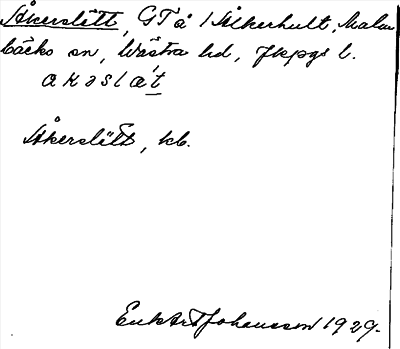 Åkerslätt, GT å 1 Älkerhult, Malm
bäcks sn, Västra hd, Jkpgs l.
akəslæt
Åkerslätt, kb.
Johansson 1929.